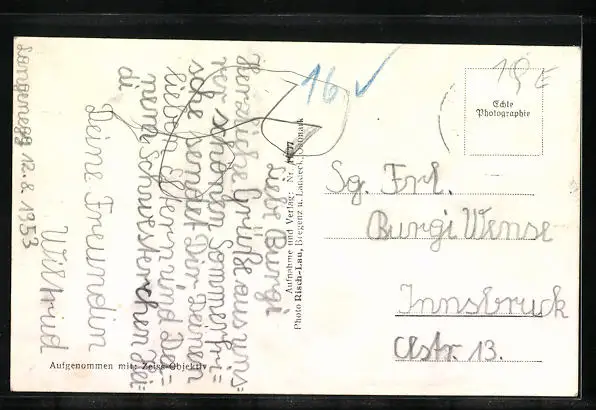 Langenegg 12.8.1953
Liebe Burgi
Herzliche Grüße aus uns=
rer schönen Sommerfri=
sche sendet Dir Deinen
lieben Eltern und Dei=
nem Schwesterchen
Deine Freundin
Wiltrud
Aufgenommen mit: Zeiss-Objektiv
Aufnahme und Verlag: Nr.
Photo Risch-Lau, Bregenz u. Landeck, Ostmark
16
Echte
Photographie
Sg. Frl.
Burgi Wense
Innsbruck
13.